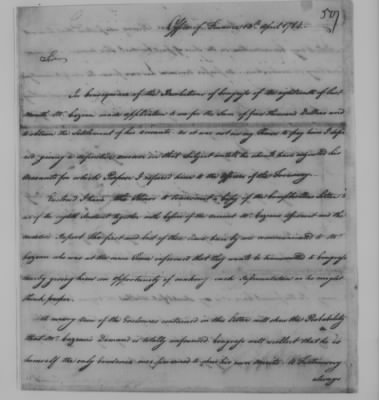 507
Office of Finance 12th April 1784.
Sir
In Consequence of the Resolutions of Congress of the eighteenth of last
Month Mr. Cazeau made application to me for the Sum of four thousand Dollars and
to obtain the Settlement of his Accounts. As it was not in my Power to pay him I defer
red giving a definitive answer on that Subject until he should have adjusted his
Accounts for which Purpose I referred him to the Officers of the Treasury.
Enclosed I have the Honor to transmit a Copy of the Comptroller's Letter
of the eighth Instant together with Copies of the account Mr. Cazeau's Affidavit and the
Report. The first and last of these have been by me communicated to Mr.
Cazeau who was at the same Time informed that they would be transmitted to Congress
thereby giving him an Opportunity of making such Representation as he might
think proper.
A cursory view of the Enclosures contained in this Letter will shew the Probability
that Mr. Cazeau's Demand is totally unfounded Congress will recollect that he is
himself the only Evidence produced to shew his own Merits. A Testimony
always